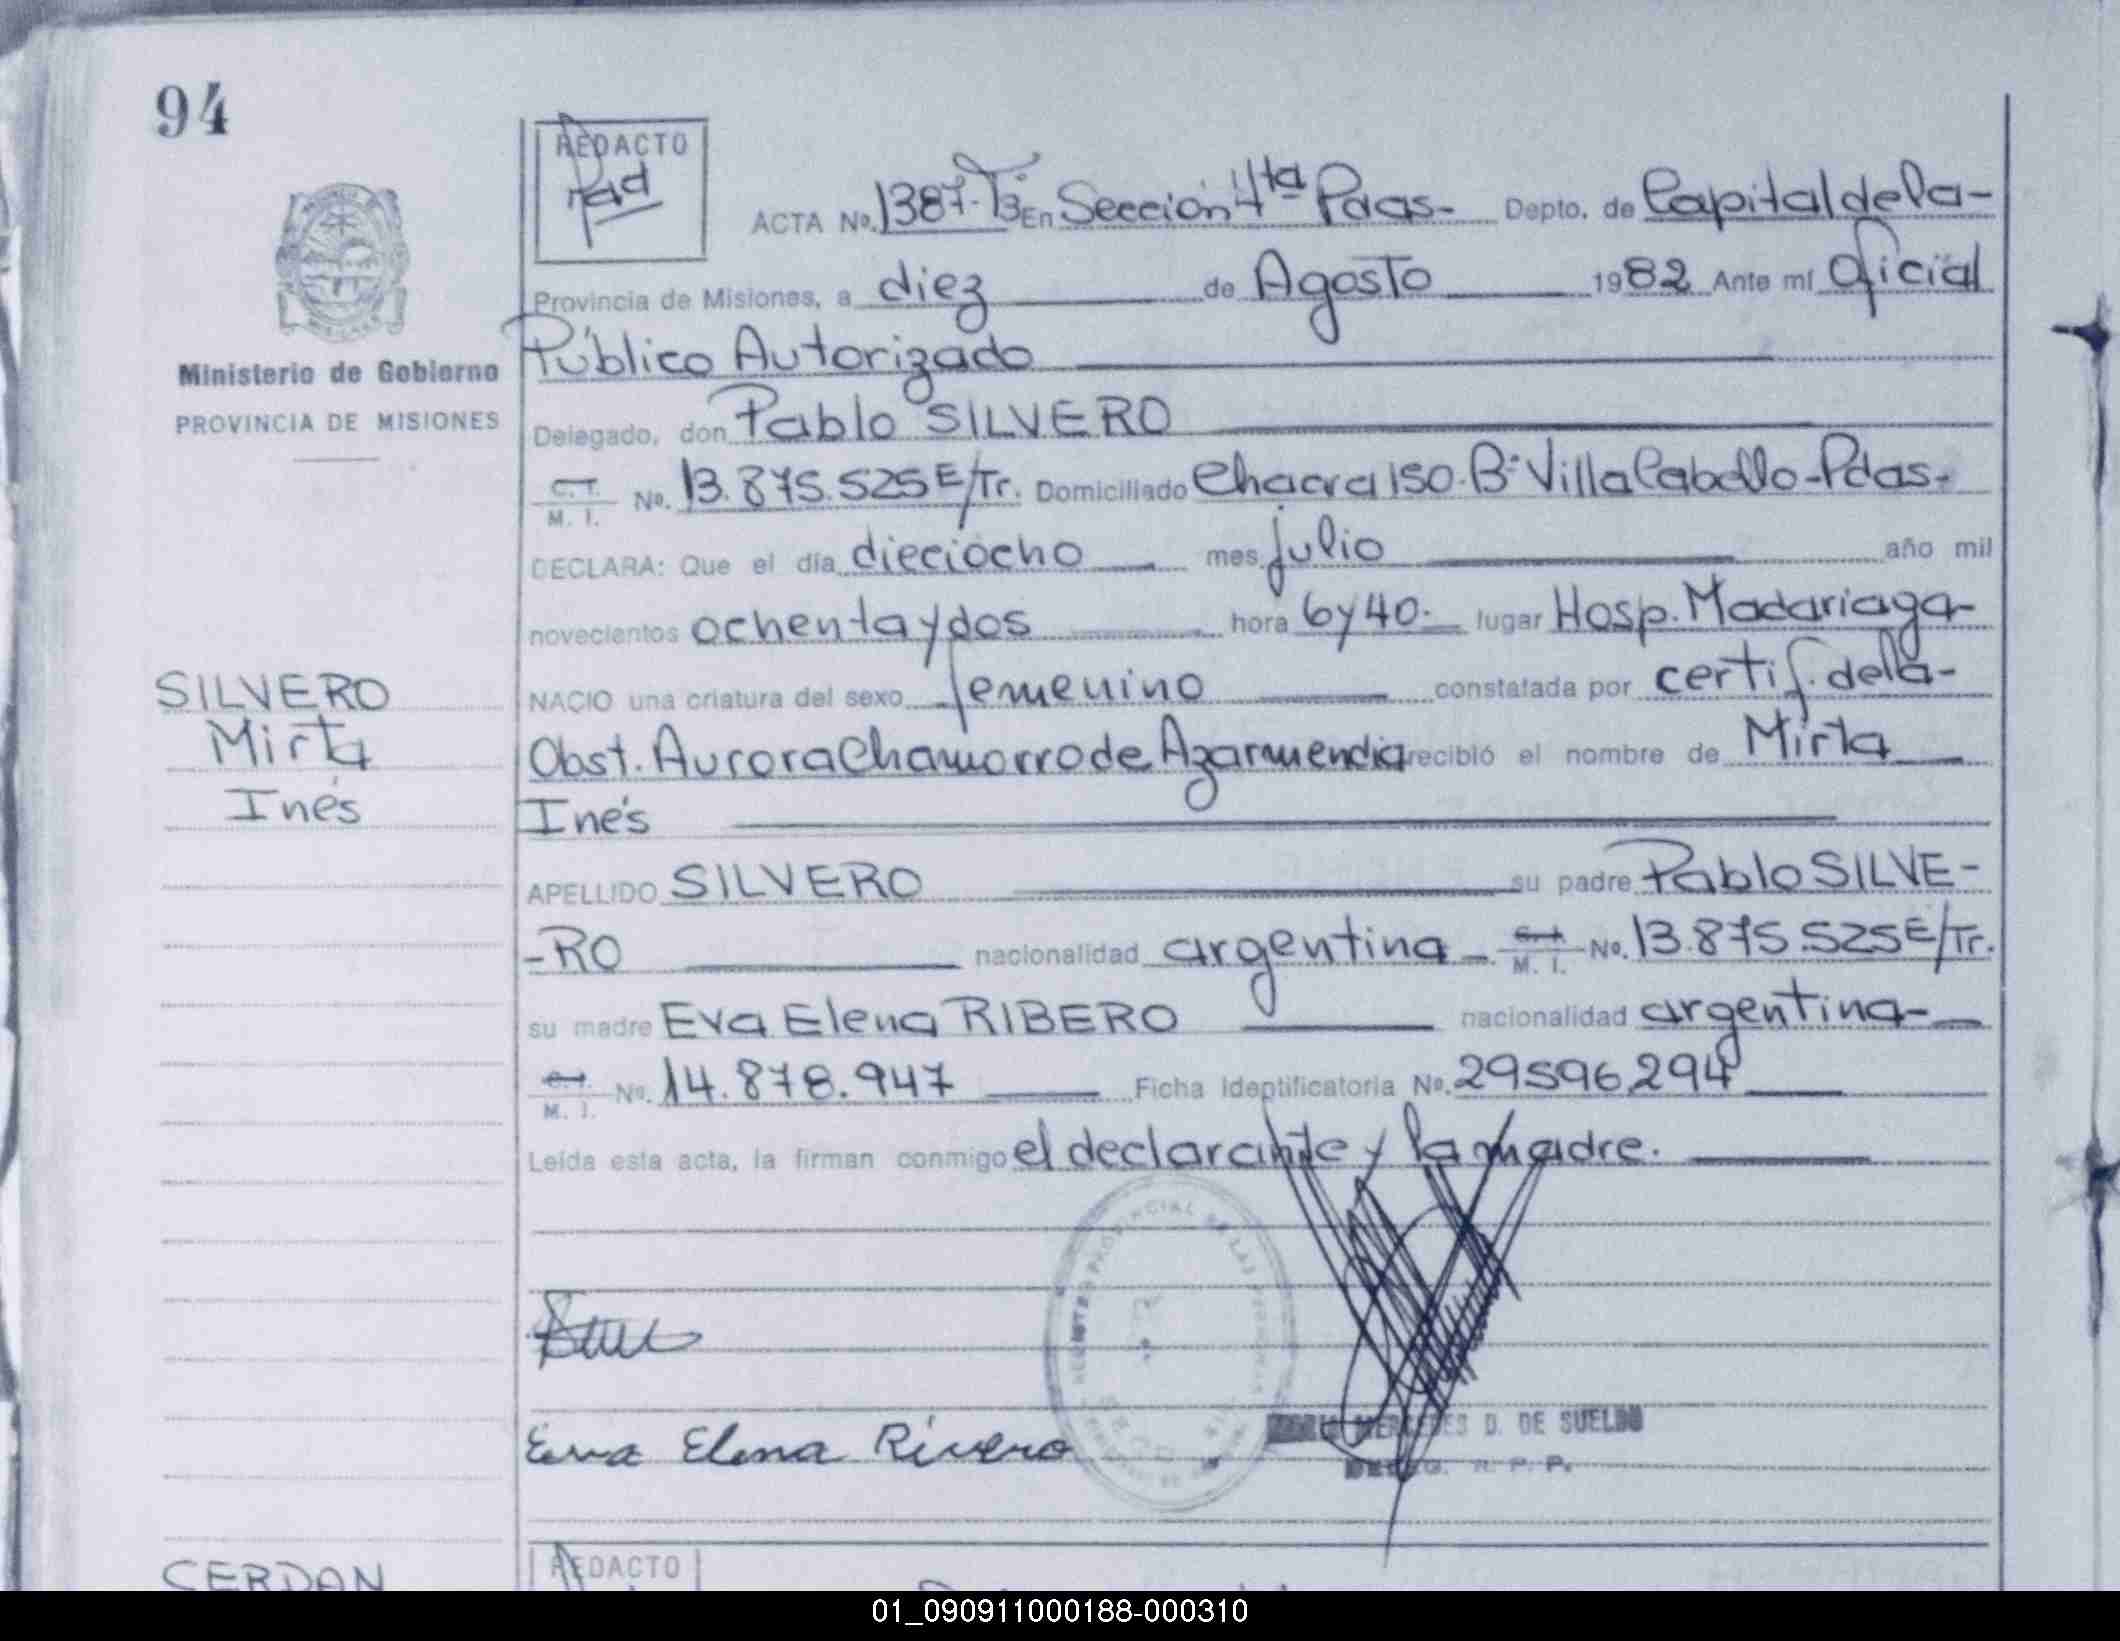 94
REDACTO
ACTA No. 1387-Tº3 En Sección 4ta Pdas- Depto. de Capital de la-
Provincia de Misiones, a diez de Agosto 1982 Ante mí Oficial
Público Autorizado
Ministerio de Gobierno
PROVINCIA DE MISIONES
Delegado, don Pablo SILVERO
C.I. M. I. No. 13.875.525 E/Tr. Domiciliado Chacra 150-Bº Villa Cabello-Pdas-
DECLARA: Que el día dieciocho mes julio año mil
novecientos ochenta y dos hora 6 y 40- lugar Hosp. Madariaga-
SILVERO
Mirta
Inés
NACIO una criatura del sexo femenino constatada por certif. de la-
Obst. Aurora Chamorro de Azarmendia recibió el nombre de Mirta
Inés
APELLIDO SILVERO su padre Pablo SILVE-
-RO nacionalidad argentina C.I. M. I. No. 13.875.525 E/Tr.
su madre Eva Elena RIBERO nacionalidad argentina-
C.I. M. I. No. 14.878.947 Ficha Identificatoria No. 29596294
Leída esta acta, la firman conmigo el declarante y la madre.
Eva Elena Rivero
MERCEDES D. DE SUELDO
R. P. P.
CERDAN
REDACTO
01_090911000188-000310